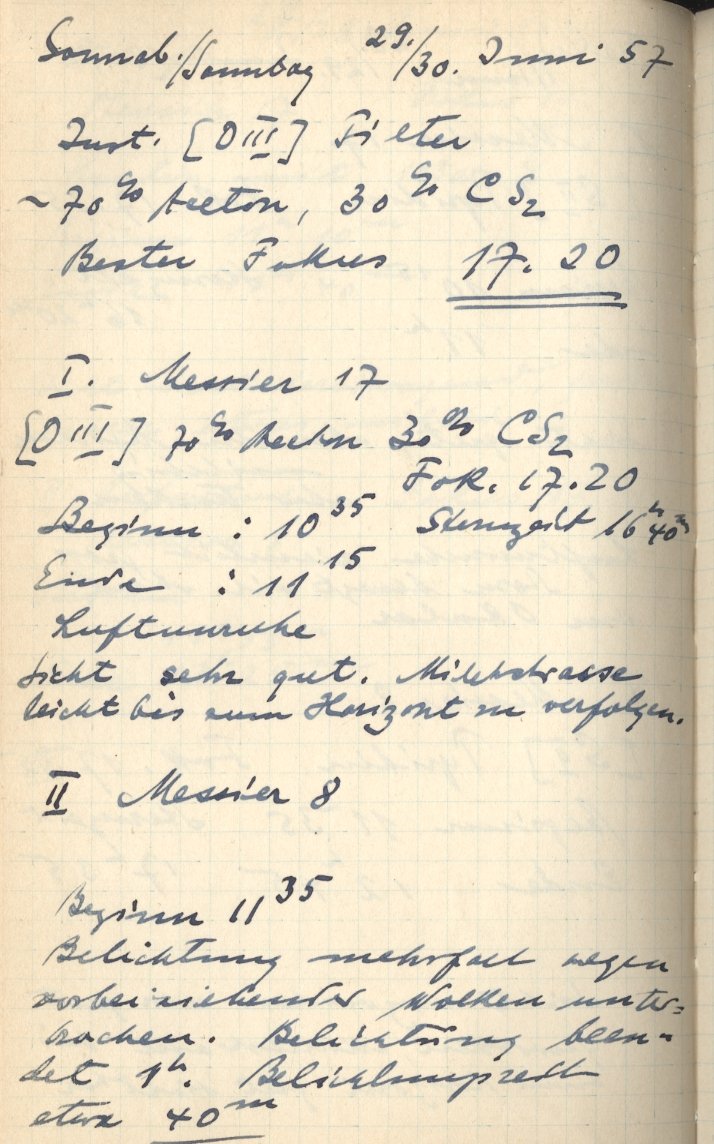 Sonnab./Sonntag 29./30. Juni 57
Inst. [O III] Filter
~ 70 % Aceton, 30 % CS₂
Bester Fokus 17.20
I. Messier 17
[O III] 70 % Aceton 30 % CS₂
Fok. 17.20
Beginn : 10³⁵ Sternzeit 16ʰ 40ᵐ
Ende : 11¹⁵
Luftunruhe
Sicht sehr gut. Milchstrasse
leicht bis zum Horizont zu verfolgen.
II Messier 8
Beginn 11³⁵
Belichtung mehrfach wegen
vorbeiziehender Wolken unter=
brochen. Belichtung been-
det 1ʰ. Belichtungszeit
etwa 40ᵐ